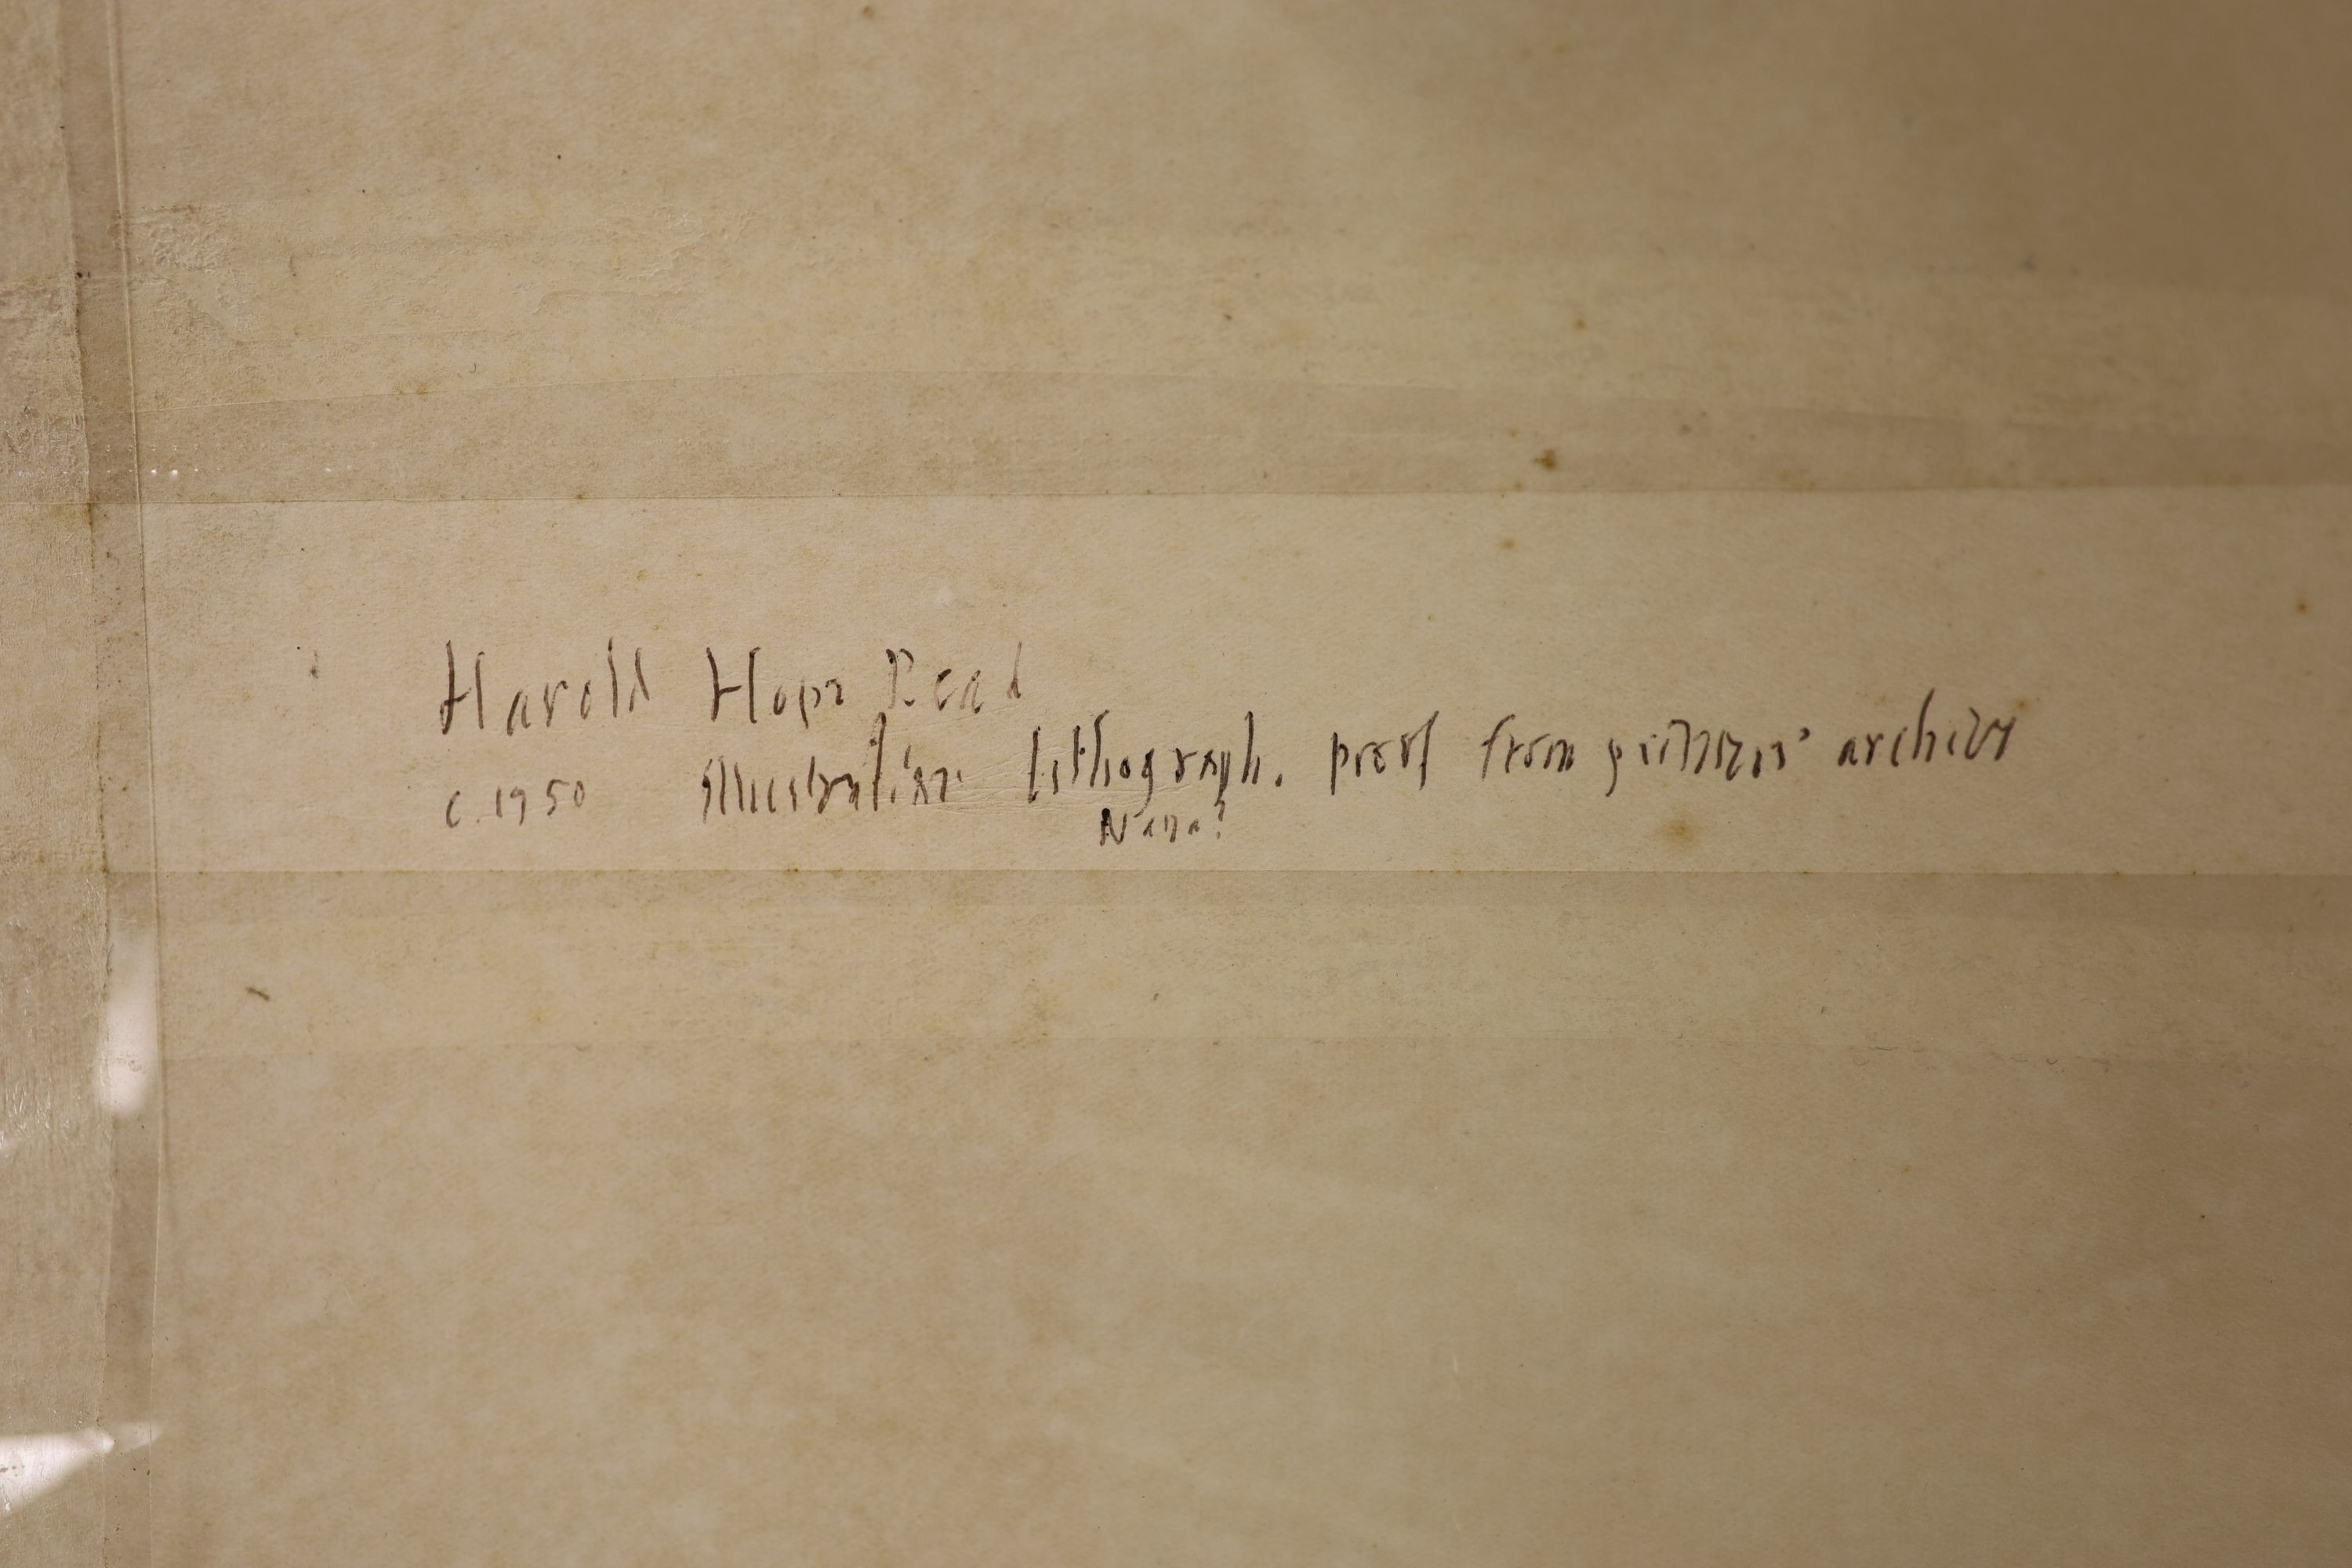 Harold Hope Read
c. 1950 illustration lithograph. proof from printers' archive
Nana?